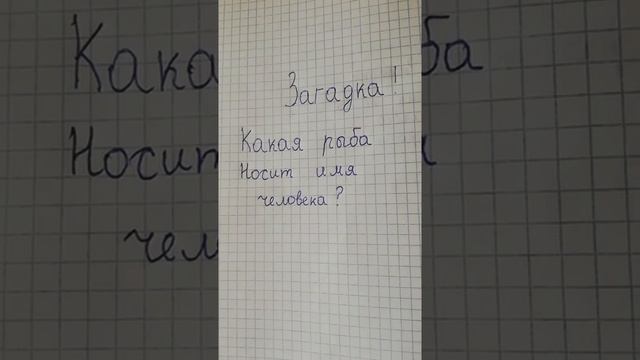 Загадка!
Какая рыба
Носит имя
человека?